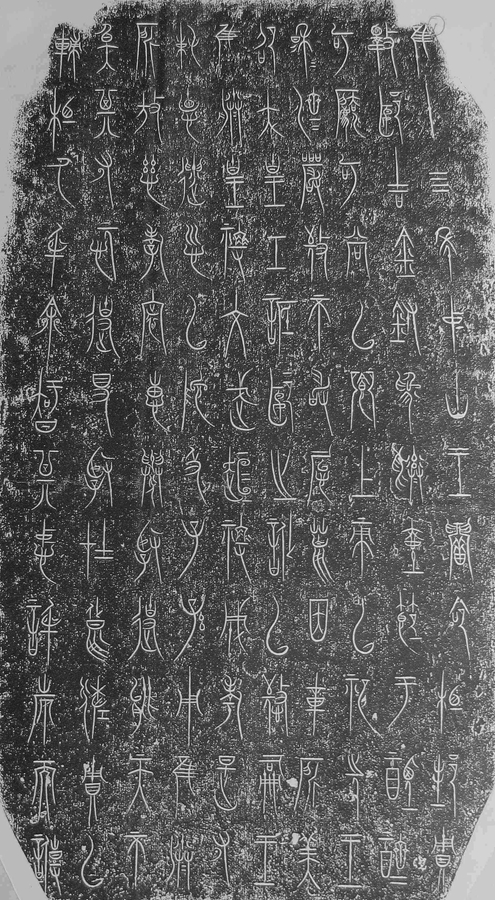 隹十四年中山王厝命相邦賙
擇郾吉金鑄為彝壺節于禋齊
可法可尚以饗上帝以祀先王
穆=濟=嚴敬不敢怠荒因載所美
卲大皇工詆郾之訛以警嗣王
隹朕皇祖文武桓祖成考是有
純德遺訓以阤及子孫用隹朕
所放慈孝宣惠舉賢使能天不
斁其有願使得賢在良佐賙以
輔相氒身余智其忠信也而專